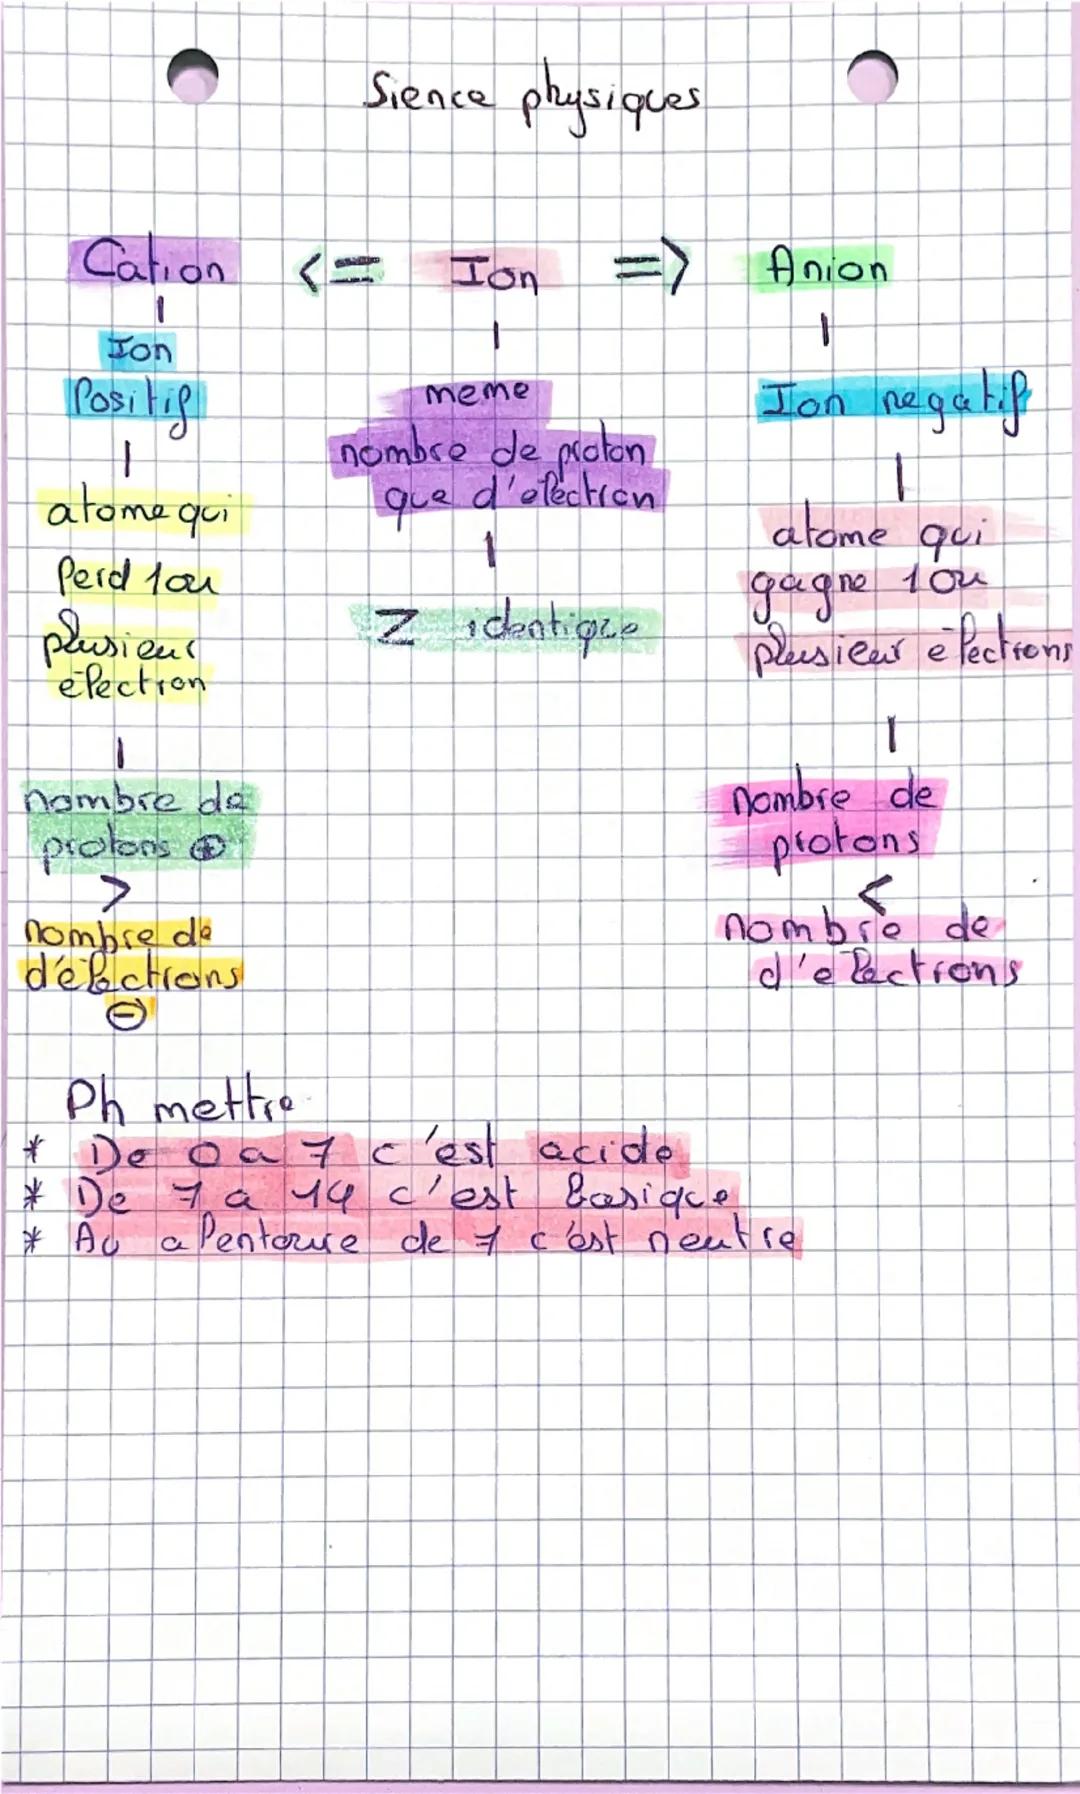 Sience physiques
Cation <= Ion => Anion
Ion
Positif
atome qui
Perd 1 ou
plusieur
électron
nombre de
protons ⊕
>
nombre de
d'électrons
⊖
meme
nombre de proton
que d'électron
Z identique
Ion negatif
atome qui
gagne 1 ou
plusieur électrons
nombre de
protons
<
nombre de
d'electrons
Ph mettre
* De 0 a 7 c'est acide
* De 7 a 14 c'est basique
* Au alentoure de 7 c'est neutre